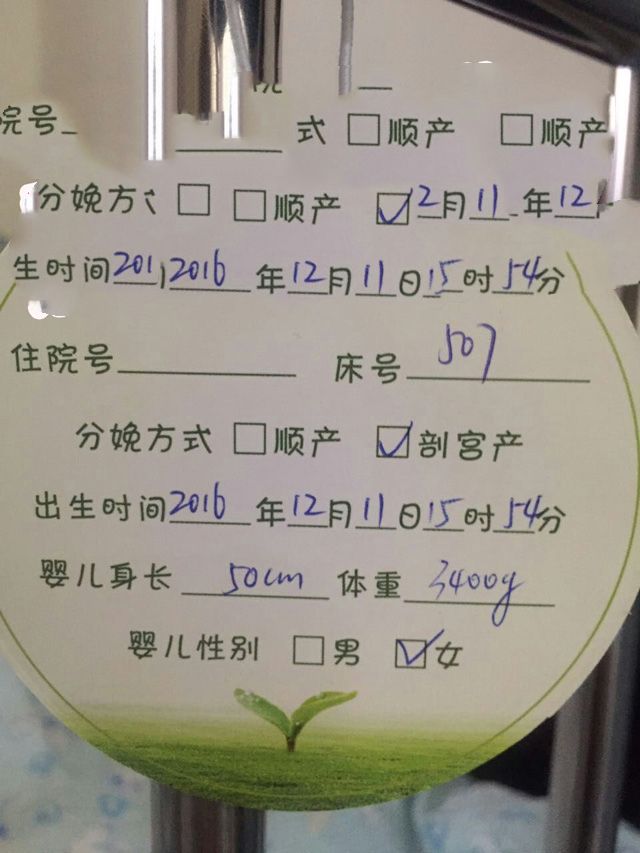 院号 式 □顺产 □顺产
分娩方 □ □顺产 ☑2月11年12
生时间201 2016年12月11日15时54分
住院号 床号507
分娩方式 □顺产 ☑剖宫产
出生时间2016年12月11日15时54分
婴儿身长50cm 体重3400g
婴儿性别 □男 ☑女